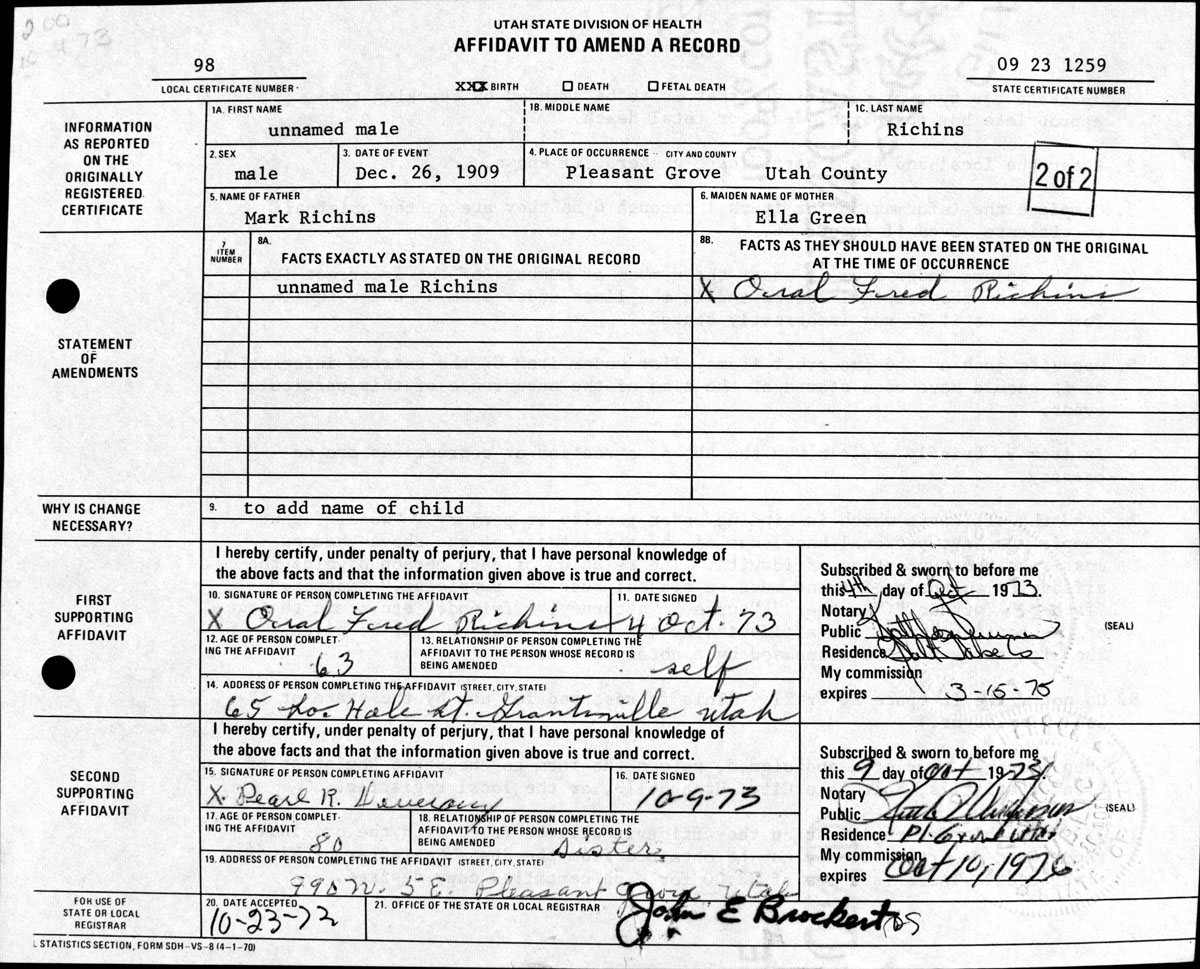 200
UTAH STATE DIVISION OF HEALTH
AFFIDAVIT TO AMEND A RECORD
98
LOCAL CERTIFICATE NUMBER
XXX BIRTH ☐ DEATH ☐ FETAL DEATH
09 23 1259
STATE CERTIFICATE NUMBER
INFORMATION AS REPORTED ON THE ORIGINALLY REGISTERED CERTIFICATE
1A. FIRST NAME 1B. MIDDLE NAME 1C. LAST NAME
unnamed male Richins
2. SEX 3. DATE OF EVENT 4. PLACE OF OCCURRENCE -- CITY AND COUNTY
male Dec. 26, 1909 Pleasant Grove Utah County
2 of 2
5. NAME OF FATHER 6. MAIDEN NAME OF MOTHER
Mark Richins Ella Green
STATEMENT OF AMENDMENTS
7 ITEM NUMBER
8A. FACTS EXACTLY AS STATED ON THE ORIGINAL RECORD
8B. FACTS AS THEY SHOULD HAVE BEEN STATED ON THE ORIGINAL AT THE TIME OF OCCURRENCE
unnamed male Richins X Oral Fred Richins
WHY IS CHANGE NECESSARY?
9. to add name of child
FIRST SUPPORTING AFFIDAVIT
I hereby certify, under penalty of perjury, that I have personal knowledge of
the above facts and that the information given above is true and correct.
10. SIGNATURE OF PERSON COMPLETING THE AFFIDAVIT 11. DATE SIGNED
X Oral Fred Richins 4 Oct. 73
12. AGE OF PERSON COMPLETING THE AFFIDAVIT
63
13. RELATIONSHIP OF PERSON COMPLETING THE AFFIDAVIT TO THE PERSON WHOSE RECORD IS BEING AMENDED
self
14. ADDRESS OF PERSON COMPLETING THE AFFIDAVIT (STREET, CITY, STATE)
65 So. Hale St. Grantsville Utah
Subscribed & sworn to before me
this 4th day of Oct 1973.
Notary
Public
Residence Salt Lake Co
My commission
expires 3-15-75
(SEAL)
SECOND SUPPORTING AFFIDAVIT
I hereby certify, under penalty of perjury, that I have personal knowledge of
the above facts and that the information given above is true and correct.
15. SIGNATURE OF PERSON COMPLETING AFFIDAVIT 16. DATE SIGNED
X. Pearl R. 10-9-73
17. AGE OF PERSON COMPLETING THE AFFIDAVIT
80
18. RELATIONSHIP OF PERSON COMPLETING THE AFFIDAVIT TO THE PERSON WHOSE RECORD IS BEING AMENDED
Sister
19. ADDRESS OF PERSON COMPLETING THE AFFIDAVIT (STREET, CITY, STATE)
990 N. 5 E. Pleasant Grove Utah
Subscribed & sworn to before me
this 9 day of Oct 1973.
Notary
Public
Residence Pl. Grove Utah
My commission
expires Oct 10, 1976
(SEAL)
FOR USE OF STATE OR LOCAL REGISTRAR
20. DATE ACCEPTED 21. OFFICE OF THE STATE OR LOCAL REGISTRAR
10-23-73 John E Brockert
L STATISTICS SECTION, FORM SDH-VS-8 (4-1-70)